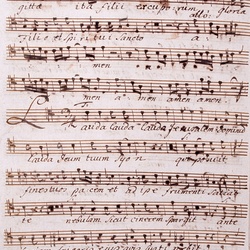 gitta ita filii excussorum gloria
allo:
Filio et Spiritui Sancto a
men a men amen amen
Lauda lauda lauda Jerusalem Dominum
lauda Deum tuum Syon qui posuit
fines tuos pacem et adipe frumenti satiat
te nebulam sicut cinerem spargit ante